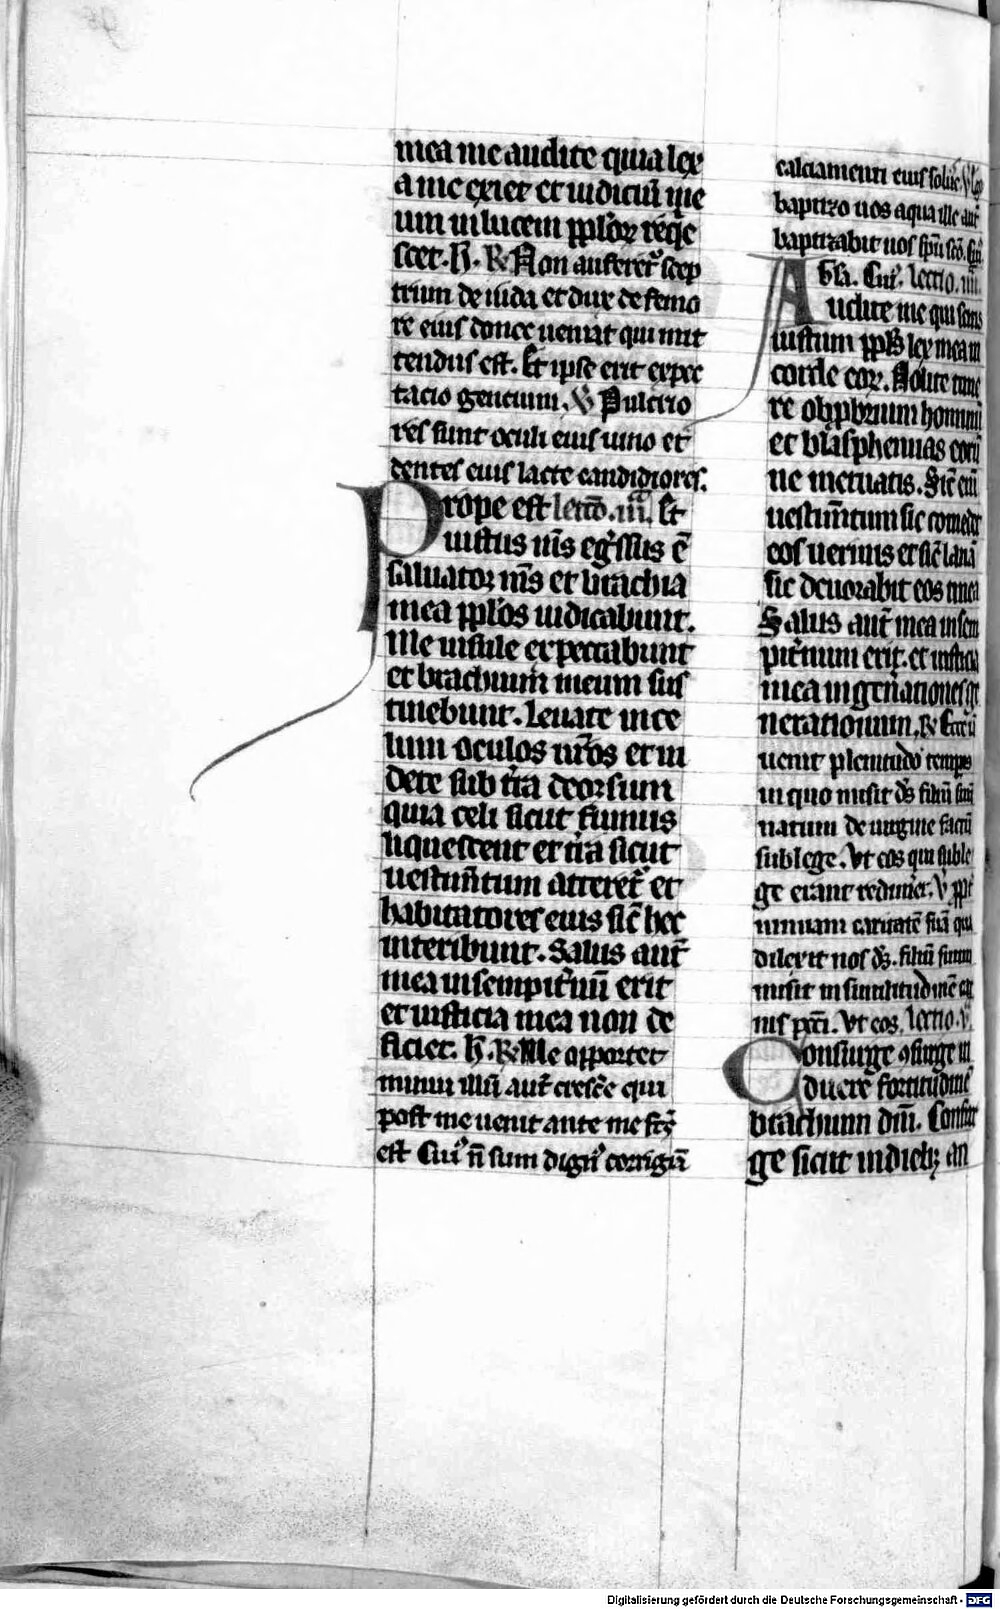 mea me audite quia lex
a me exiet et iudiciũ me
um in lucem pplõꝝ reqͥe
scet. h̃. ℟ Non auferetʳ scep
trum de iuda et dux de femo
re eius donec ueniat qui mit
tendus est. Et ipse erit expec
tacio gencium. ℣ Pulcrio
res sunt oculi eius uino et
dentes eius lacte candidiores.
Prope est lectõ. iii. Et
iustus mꝰs egͥssus ẽ
saluator mꝰs et brachia
mea pplõs iudicabunt.
Me insule expectabunt
et brachium meum sus
tinebunt. Leuate in ce
lum oculos uños et ui
dete sub t̃ra deorsum
quia celi sicut fumus
liquescent et t̃ra sicut
uestim̃tum atteretʳ et
habitatores eius sic̃ hec
interibunt. Salus aut̃
mea in sempit̃nũ erit
et iusticia mea non de
ficiet. h̃. ℟ Me oportet
minui illũ aut̃ cresc̃e qui
post me uenit ante me fcꝰs
est Cuiꝰ ñ sum dignꝰ corrigiã
calciamenti eius solũe. ℣ Ego
baptizo uos aqua ille aut̃
baptizabit uos spũ scõ. Cuiꝰ
Ab̃i. Cuiꝰ. Lectio. iiii.
Audite me qui scitis
iustum ppĺs lex mea in
corde eoꝝ. Nolite time
re obpͥbrium hominũ
et blasphemias eorũ
ne metuatis. Sic̃ eni͂
uestim̃tum sic comedet
eos uermis et sic̃ lanã
sic deuorabit eos tinea
Salus aut̃ mea in sem
pit̃num erit. et iusticia
mea in gen̄ationes ge
nerationum. ℟ Ecce iã
uenit plenitudo temporis
in quo misit dꝰs filiũ suũ
natum de uirgine factũ
sub lege. Vt eos qui sub le
ge erant redimẽt. ℣ ppͭ
nimiam caritatẽ suã qua
dilexit nos dꝰs. filiũ suum
misit in similitudinẽ car
nis pcc̃i. Vt eos. Lectio. v.
Consurge ꝯsurge in
duere fortitudinẽ
brachium dñi. Consur
ge sicut in dieb; an